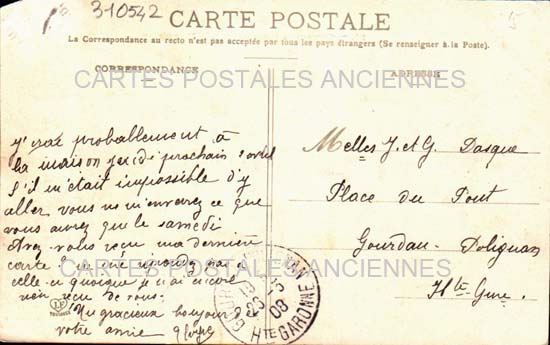 310542
CARTE POSTALE
La Correspondance au recto n'est pas acceptée par tous les pays étrangers (Se renseigner à la Poste).
CORRESPONDANCE
ADRESSE
CARTES POSTALES ANCIENNES
y'irai probablement à
la maison jeudi prochain avril
s'il m'était impossible d'y
aller vous ne m'enverez ce que
vous aurez que le samedi
Avez vous reçu ma dernière
carte? ne me répondez pas à
celle-ci quoique je n'ai encore
rien reçu de vous.
Un gracieux bonjour de
votre amie
Melles J. et G. Dasque
Place du Pont
Gourdan-Polignan
Hte Gne.
CARTES POSTALES ANCIENNES
08
Hte GARONNE
LF
TOULOUSE